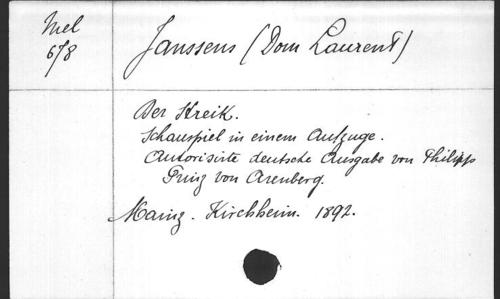 Mel
678
Janssens (Dom Laurent)
Der Streik.
Schauspiel in einem Aufzuge.
Autorisirte deutsche Ausgabe von Philipp
Prinz von Arenberg.
Mainz. Kirchheim. 1892.